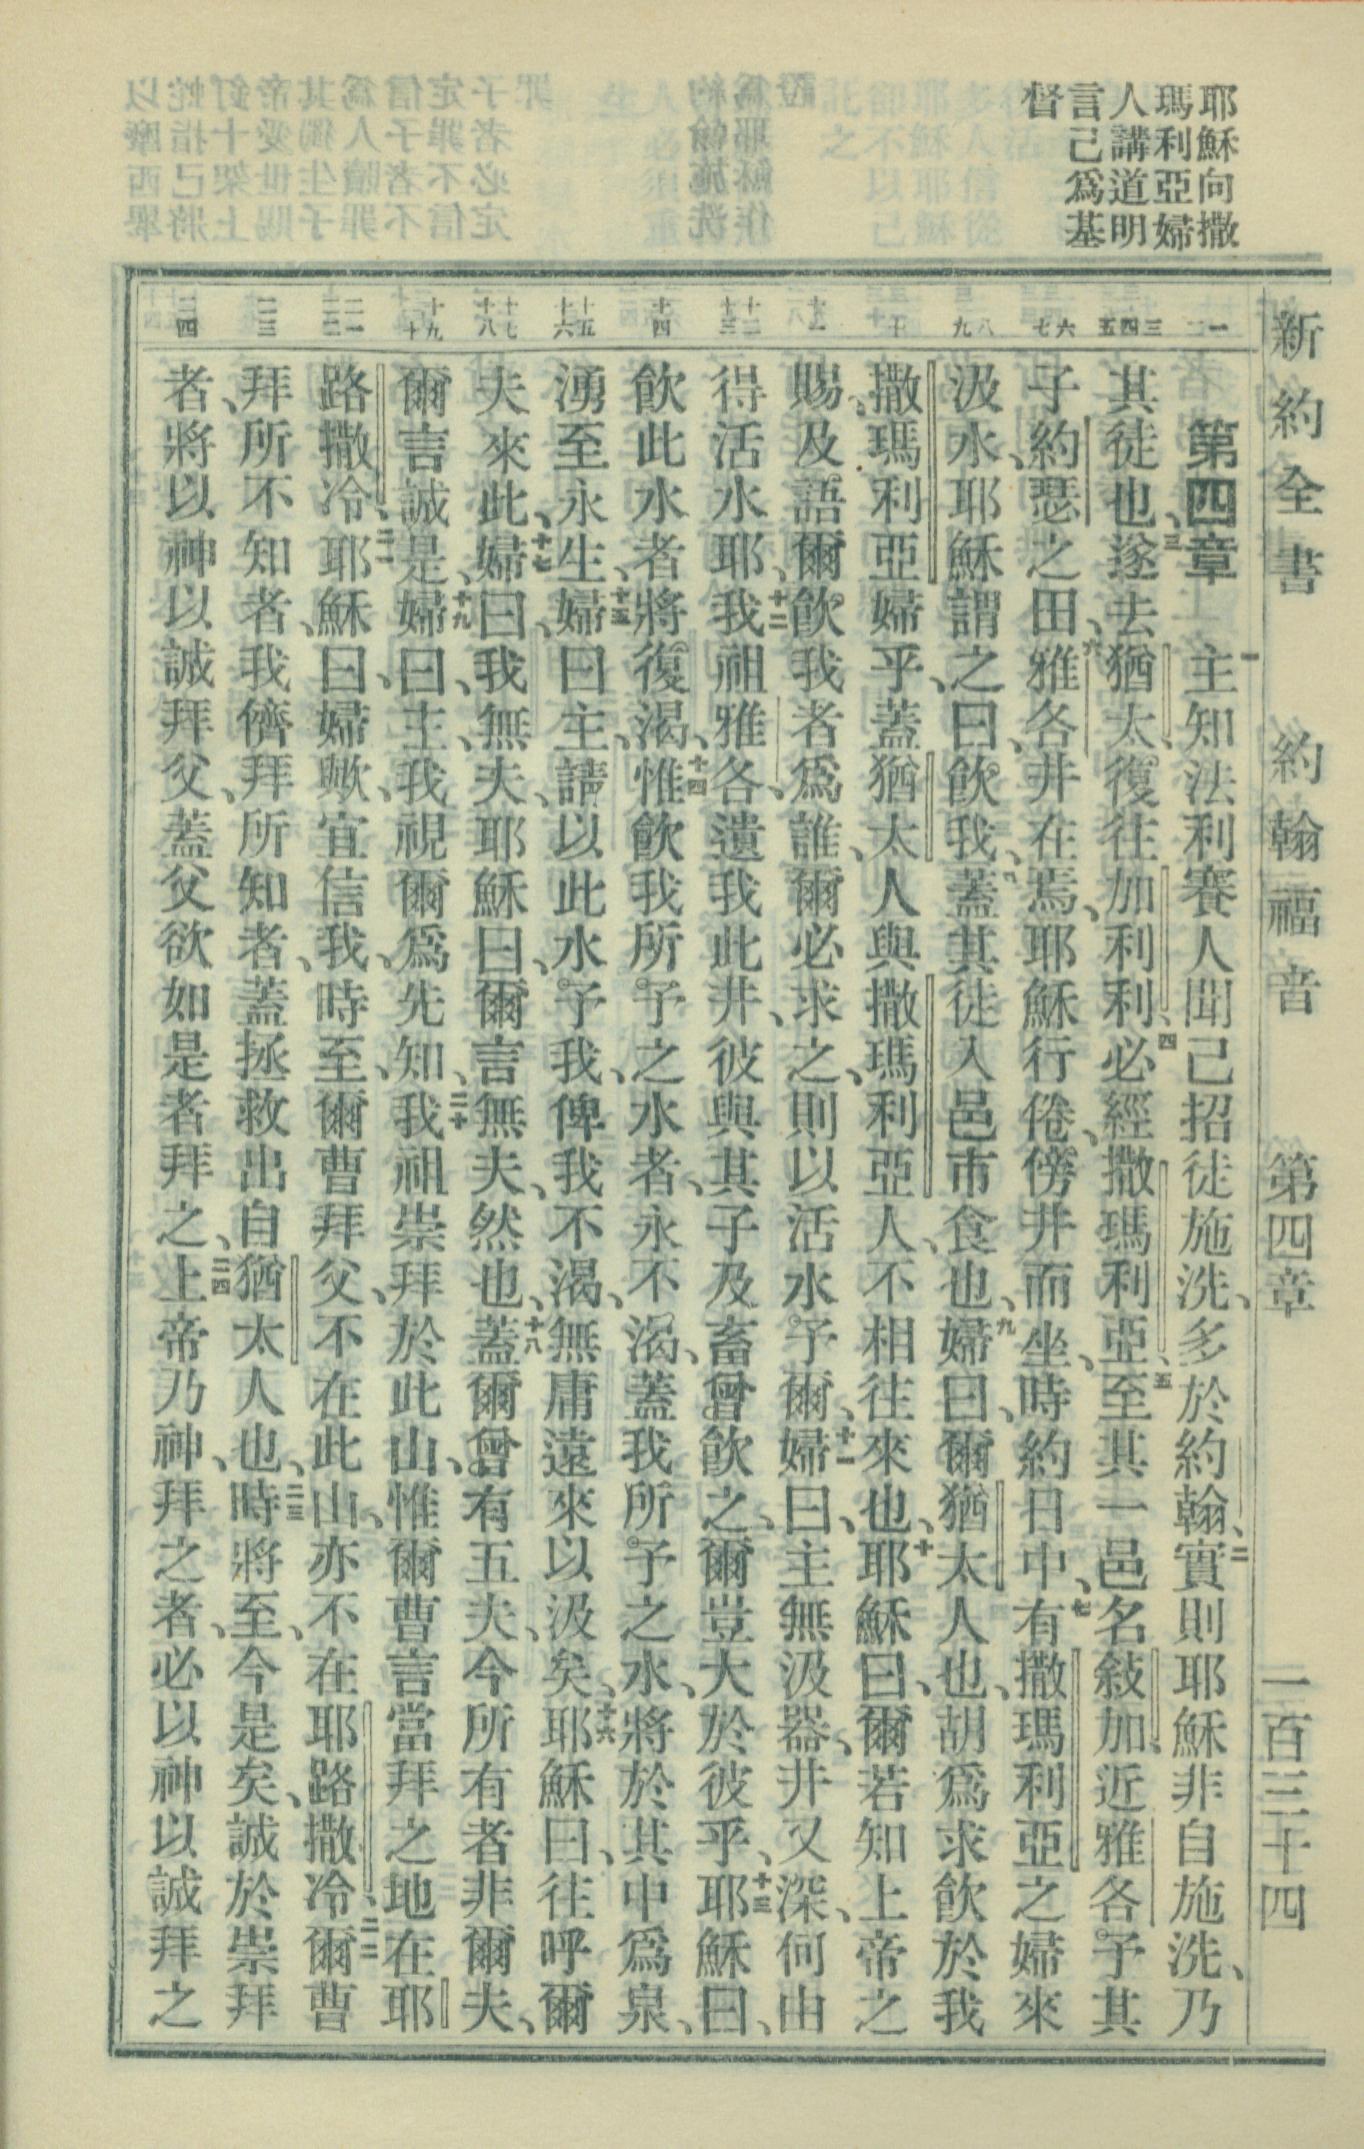 新約全書　約翰福音　第四章　一百三十四
耶穌向撒
瑪利亞婦
人講道明
言己爲基
督
一二
三四五
六七
八九
十
十一
十二十三
十四
十五十六
十七十八
十九二十
二一二二
二三
二四
第四章　一主知法利賽人聞己招徒施洗、多於約翰、二實則耶穌非自施洗、乃
其徒也、三遂去猶太、復往加利利、四必經撒瑪利亞、五至其一邑名敍加、近雅各予其
子約瑟之田、六雅各井在焉、耶穌行倦、傍井而坐、時約日中、七有撒瑪利亞之婦來
汲水、耶穌謂之曰、飲我、八蓋其徒入邑市食也、九婦曰、爾猶太人也、胡爲求飲於我
撒瑪利亞婦乎、蓋猶太人與撒瑪利亞人、不相往來也、十耶穌曰、爾若知上帝之
賜、及語爾飲我者爲誰、爾必求之、則以活水予爾、十一婦曰、主無汲器、井又深、何由
得活水耶、十二我祖雅各、遺我此井、彼與其子及畜曾飲之、爾豈大於彼乎、十三耶穌曰、
飲此水者、將復渴、十四惟飲我所予之水者、永不渴、蓋我所予之水、將於其中爲泉、
湧至永生、十五婦曰、主、請以此水予我、俾我不渴、無庸遠來以汲矣、十六耶穌曰、往呼爾
夫來此、十七婦曰、我無夫、耶穌曰、爾言無夫、然也、十八蓋爾曾有五夫、今所有者非爾夫、
爾言誠是、十九婦曰、主、我視爾爲先知、二十我祖崇拜於此山、惟爾曹言當拜之地在耶
路撒冷、二一耶穌曰、婦歟、宜信我、時至、爾曹拜父、不在此山、亦不在耶路撒冷、二二爾曹
拜所不知者、我儕拜所知者、蓋拯救出自猶太人也、二三時將至、今是矣、誠於崇拜
者、將以神以誠拜父、蓋父欲如是者拜之、二四上帝乃神、拜之者、必以神以誠拜之